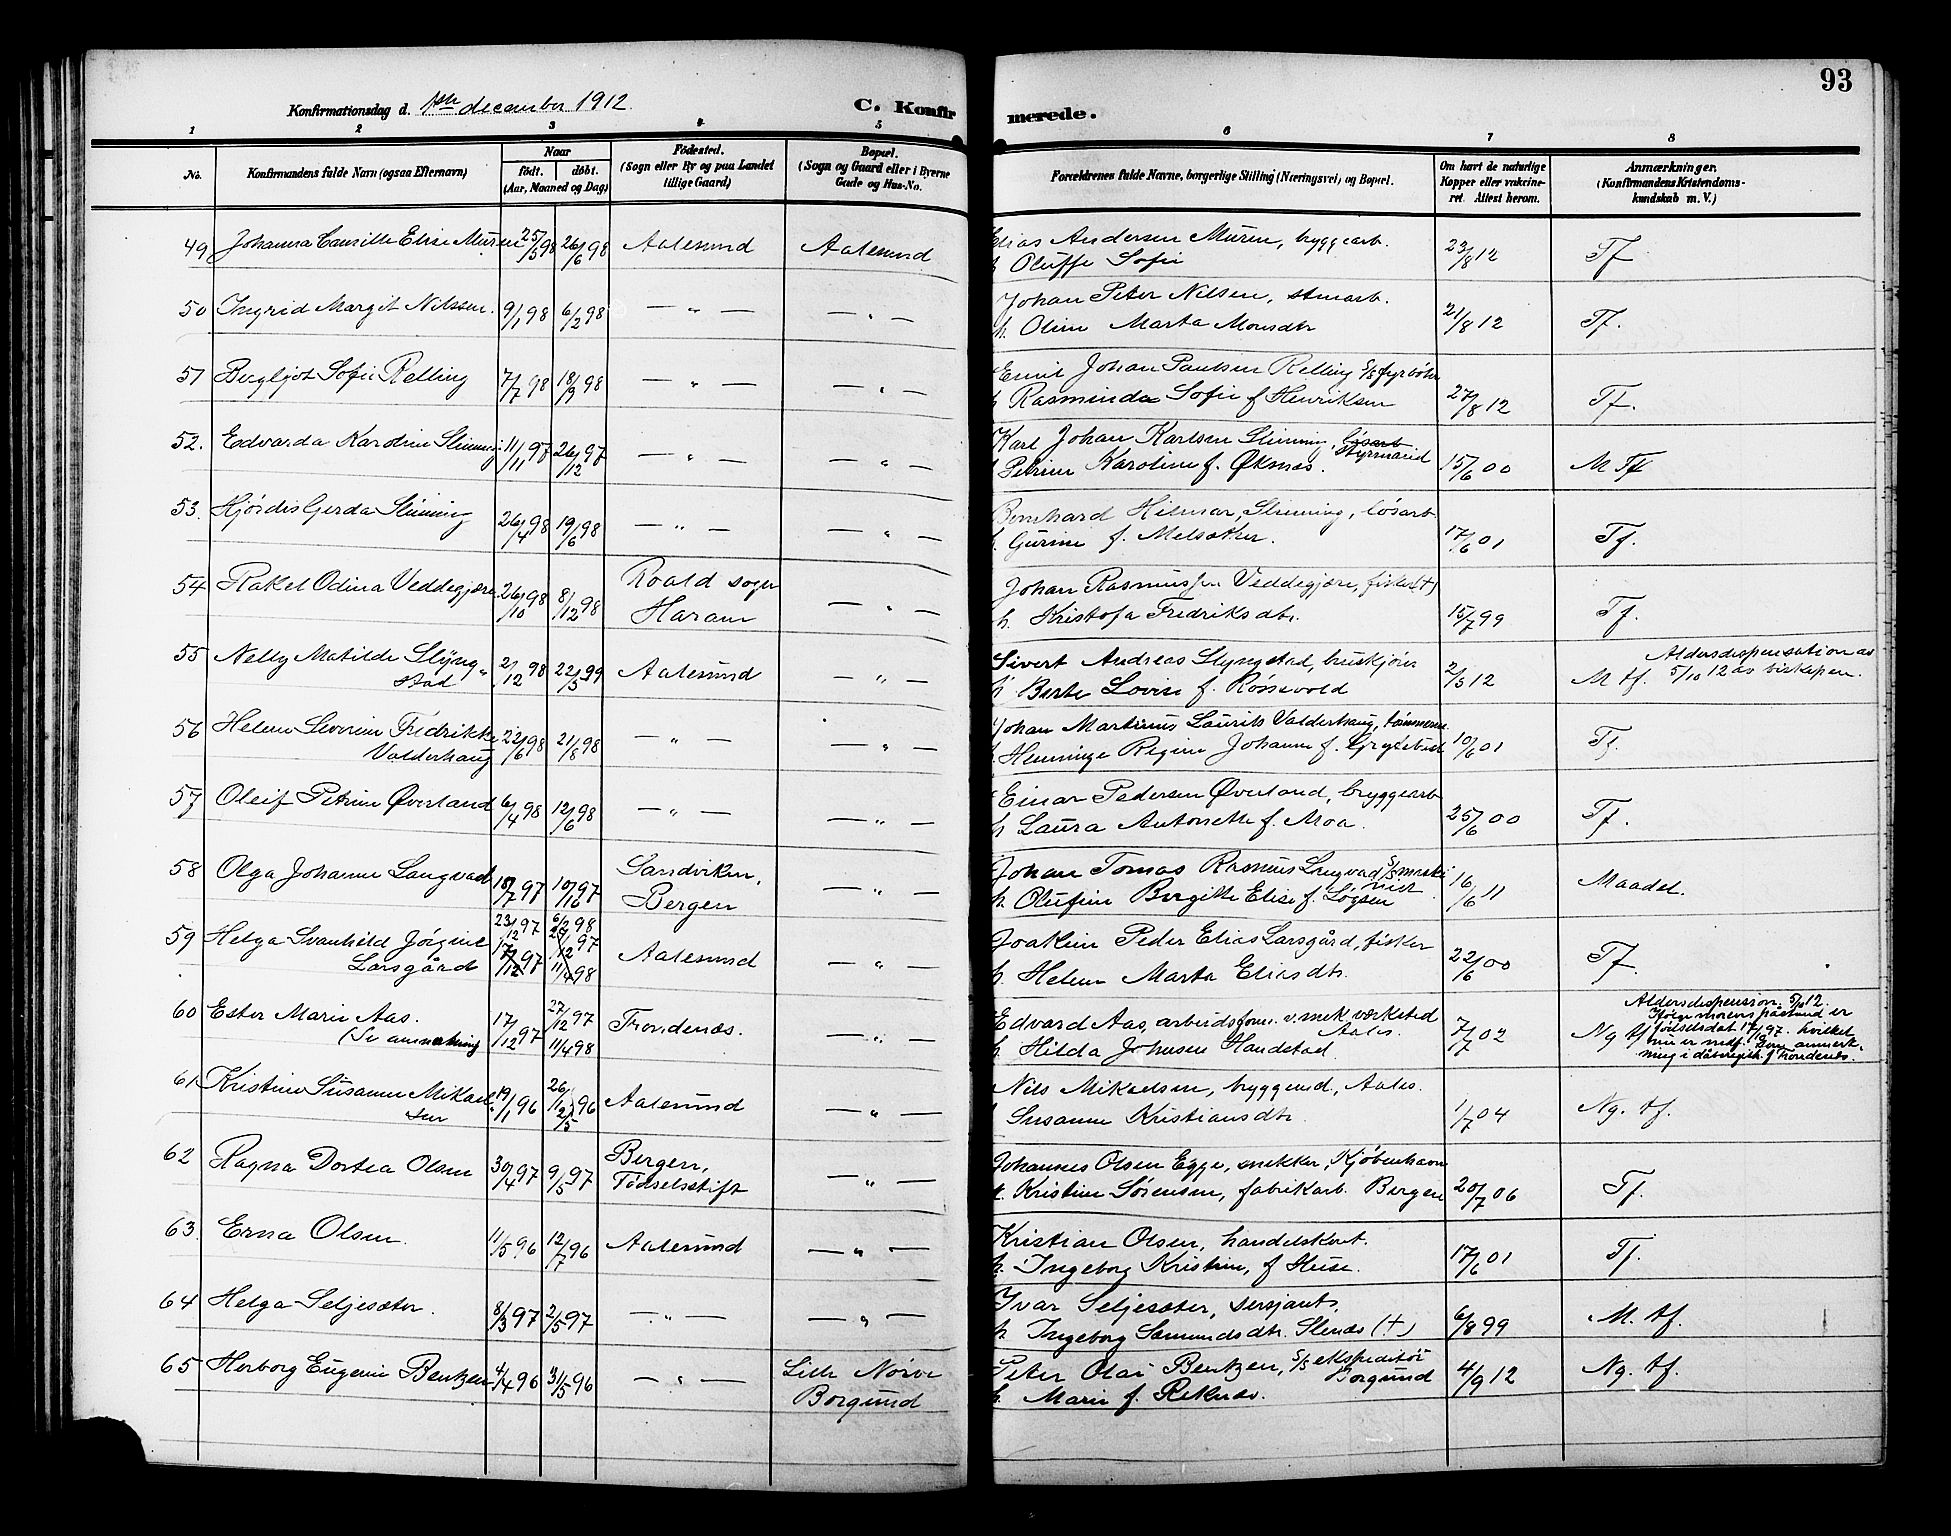 93
Konfirmationsdag d. 1ste december 1912.
C. Konfirmerede.
1 2 3 4 5 6 7 8
No.
Konfirmandens fulde Navn (ogsaa Efternavn)
Naar
født. døbt.
(Aar, Maaned og Dag)
Fødested.
(Sogn eller By og paa Landet
tillige Gaard)
Bopæl.
(Sogn og Gaard eller i Byerne
Gade og Hus-No.
Forældrenes fulde Navne, borgerlige Stilling (Næringsvei) og Bopæl.
Om havt de naturlige
Kopper eller vakcineret. Attest herom.
Anmærkninger.
(Konfirmandens Kristendomskundskab m. V.)
49 Johanna Camille Elise Muren 25/5 98 26/6 98 Aalesund Aalesund Elias Andersen Muren, bryggearb. 23/8 12 Tf
h. Oluffe Sofie
50 Ingrid Margit Nilssen. 9/1 98 6/2 98 — " — — " — Johan Peter Nilsen, stuarb. 21/8 12 Tf.
h. Oline Marta Monsdtr
51 Bergljot Sofie Relling 7/7 98 18/9 98 — " — — " — Emil Johan Paulsen Relling S/S fyrbøter 27/8 12 Tf.
h Rasminda Sofie f Henriksen
52. Edvarda Karoline Slinning 11/11 97 26/12 97 — " — — " — Karl Johan Karlsen Slinning, løsarb. styrmand 15/6 00 M Tf
h. Petrine Karoline f. Øknes.
53. Hjørdis Gerda Slinning 26/4 98 19/6 98 — " — — " — Bernhard Hilmar Slinning, løsarb. 17/6 01 Tf.
h. Gurine f. Melsæter.
54 Rakel Odina Veddegjære 26/10 98 8/12 98 Roald sogn — " — Johan Rasmussen Veddegjære, fisker (+) 15/7 99 Tf.
Haram h. Kristofa Fredriksdtr.
55 Nelly Matilde Slyngstad 2/12 98 22/5 99 Aalesund — " — Sivert Andreas Slyngstad, bruskjører 2/5 12 M tf. Aldersdispensation av
5/10 12 av biskopen.
h. Berte Lovise f. Røssevold
56 Helene Severine Fredrikke 22/6 98 21/8 98 — " — — " — Johan Martinus Laurits Valderhaug, tømmerm. 10/6 01 Tf.
Valderhaug h. Henninge Regine Johanne f. Grytebust
57 Oleif Petrine Øverland 6/4 98 12/6 98 — " — — " — Einar Pedersen Øverland, bryggearb 25/6 00 Tf.
h Laura Antonette f. Moa.
58 Olga Johanne Langvad 18/7 97 10/10 97 Sandviken, — " — Johan Tomas Rasmus Langvad, S/S maskinist 16/6 11 Maadel.
Bergen h. Olufine Bergitte Elise f. Løgsen
59 Helga Svanhild Jørgine 23/12 97 6/2 98 Aalesund — " — Joakim Peder Elias Larsgård, fisker 22/6 00 Tf.
Larsgård 17/12 97 27/12 97
11/4 98 h. Helene Marta Eliasdtr.
60 Ester Marie Aas. 17/12 97 27/12 97 Trondenæs. — " — Edvard Aas, arbeidsform. v. mek. værksted 7/7 02 Ng tf
(Se anmerkning 11/4 98 Aales.
h. Hilda Johnsen Handstad
Aldersdispension. 5/10 12.
Ifølge morens påstand er
fødselsdat 17/1 97. hvilket
nu er medf. som anmerkning i dåbsregistr. f Trondenes.
61 Kristine Susanne Mikaelsen 19/1 96 26/1 2/5 96 Aalesund — " — Nils Mikaelsen, byggmd, Aales. 1/7 04 Ng. tf.
h. Susanne Kristiansdtr.
62 Ragna Dortea Olsen 30/4 97 9/5 97 Bergen, — " — Johannes Olsen Egge, snekker, Kjøbenhavn 20/7 06 Tf.
Fødselsstift h. Kristine Sørensen, fabrikarb. Bergen
63. Erna Olsen. 11/5 96 12/7 96 Aalesund — " — Kristian Olsen, handelskont. 17/6 01 Tf.
h. Ingeborg Kristine, f Huse.
64 Helga Seljesæter. 8/3 97 2/5 97 — " — — " — Ivar Seljesæter, sersjant. 6/8 99 M. tf.
h. Ingeborg Sæmundsdtr. Slenes (+)
65 Herborg Eugenie Bentzen 4/4 96 31/5 96 — " — Lille Nørve Peter Olai Bentzen, S/S ekspeditør 4/9 12 Ng. tf.
Borgund Borgund
h. Marie f. Reknes.